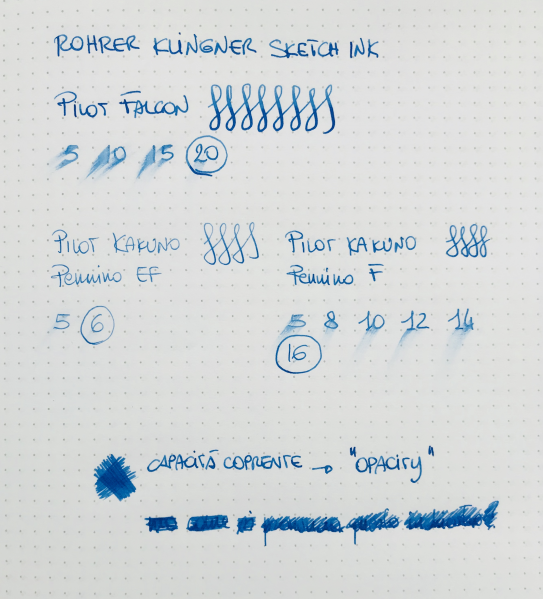 ROHRER KLINGNER SKETCH INK
PILOT FALCON
5 10 15 20
PILOT KAKUNO
Pennino EF
5 6
PILOT KAKUNO
Pennino F
5 8 10 12 14
16
CAPACITÀ COPRENTE → "OPACITY"